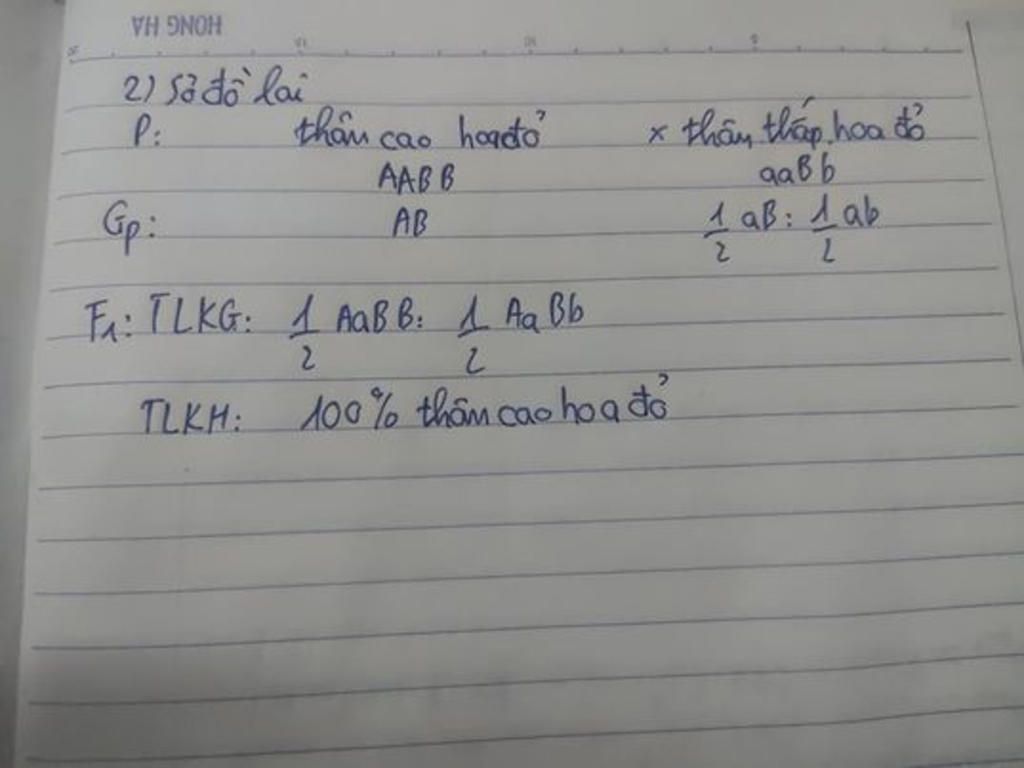 HONG HA
2) Sơ đồ lai
P: thân cao hoa đỏ x thân thấp, hoa đỏ
AABB aaBb
Gp: AB 1/2 aB : 1/2 ab
F1: TLKG: 1/2 AaBB : 1/2 AaBb
TLKH: 100% thân cao hoa đỏ